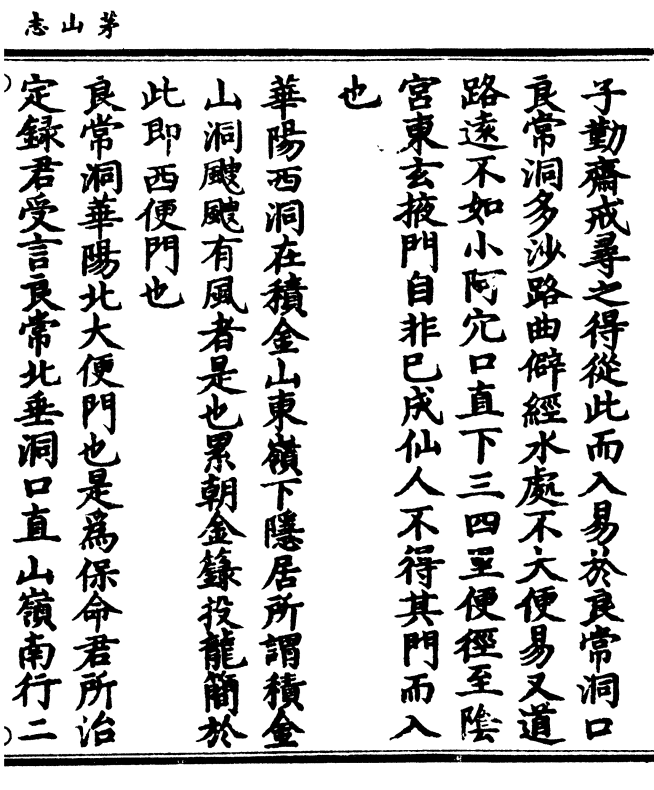 茅山志
子勤齋戒尋之得從此而入易於良常洞口
良常洞多沙路曲僻經水處不大便易又道
路遠不如小阿穴口直下三四里便徑至陰
宮東玄掖門自非已成仙人不得其門而入
也
華陽西洞在積金山東嶺下隱居所謂積金
山洞颼颼有風者是也累朝金籙投龍簡於
此即西便門也
良常洞華陽北大便門也是爲保命君所治
定録君受言良常北垂洞口直山嶺南行二